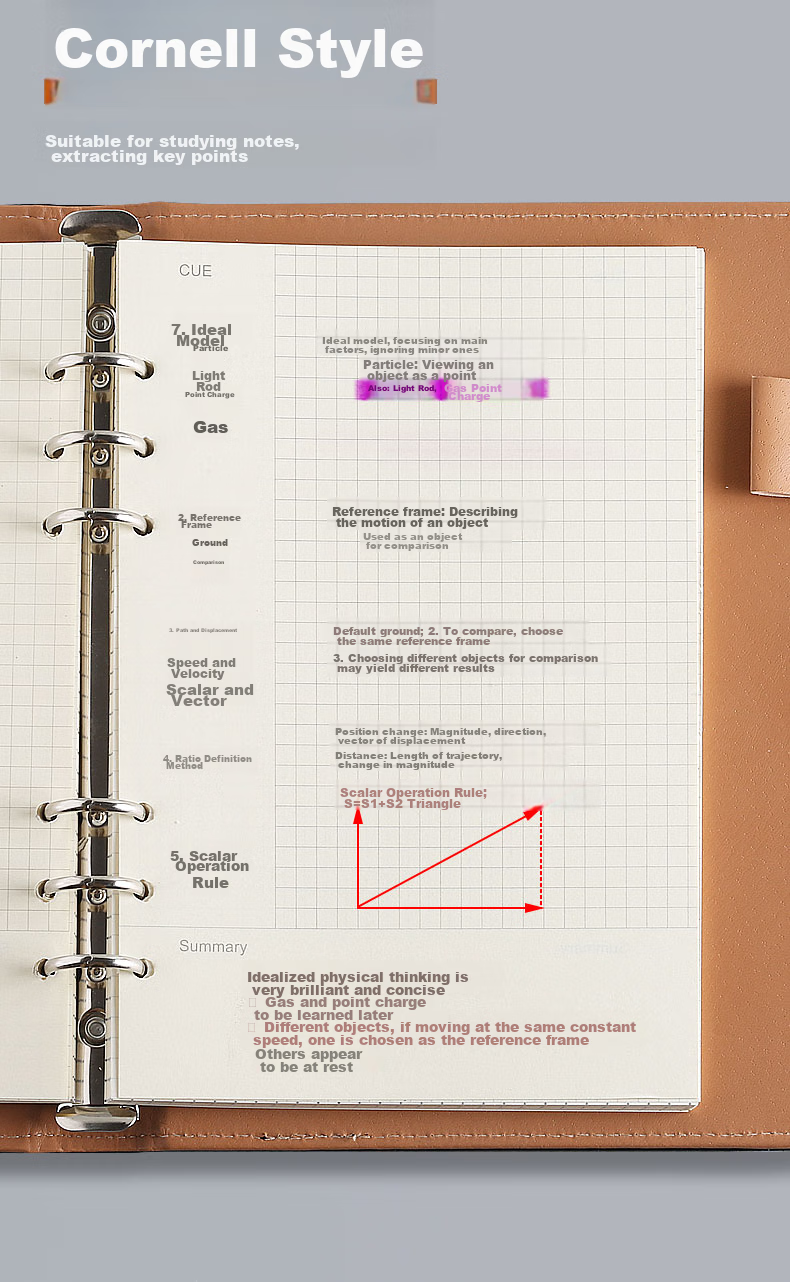 Cornell Style
Suitable for studying notes,
extracting key points
CUE
7. Ideal
Model
Particle
Light
Rod
Point Charge
Gas
2. Reference
Frame
Ground
Comparison
3. Path and Displacement
Speed and
Velocity
Scalar and
Vector
4. Ratio Definition
Method
5. Scalar
Operation
Rule
Ideal model, focusing on main
factors, ignoring minor ones
Particle: Viewing an
object as a point
Also: Light Rod,
Gas Point
Charge
Reference frame: Describing
the motion of an object
Used as an object
for comparison
Default ground; 2. To compare, choose
the same reference frame
3. Choosing different objects for comparison
may yield different results
Position change: Magnitude, direction,
vector of displacement
Distance: Length of trajectory,
change in magnitude
Scalar Operation Rule;
S=S1+S2 Triangle
Summary
Idealized physical thinking is
very brilliant and concise
Gas and point charge
to be learned later
Different objects, if moving at the same constant
speed, one is chosen as the reference frame
Others appear
to be at rest